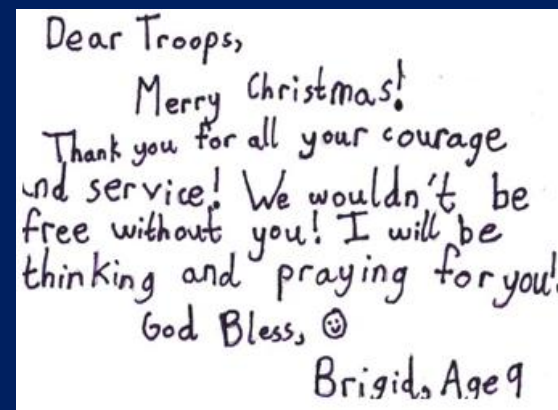 Dear Troops,
Merry Christmas!
Thank you for all your courage
and service! We wouldn't be
free without you! I will be
thinking and praying for you!
God Bless, ☺
Brigid, Age 9